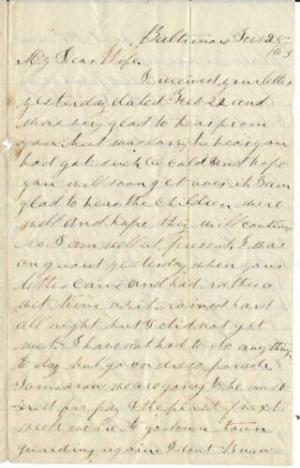 Baltimore Feb 25
/63
My Dear Wife
I received your letter
yesterday dated Feb 22 and
was very glad to hear from
you but was sorry to hear you
had got such a cold but hope
you will soon get over it I am
glad to hear the children were
well and hope they will continue
so. I am well at present I was
on guard yesterday when your
letter came and had rather a
wet time as it rained hard
all night but I did not get
wet I have not had to do anything
to day but go on dress parade
tomorrow we are going to be must-
-ered for pay & the first of next
week we are to go down town
guarding again I dont know